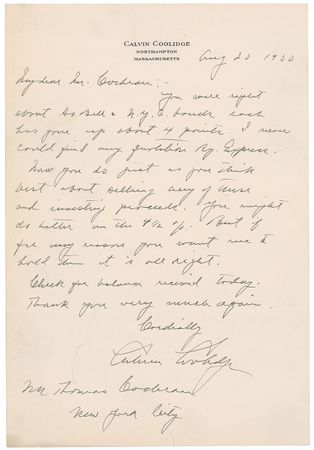 CALVIN COOLIDGE
NORTHAMPTON
MASSACHUSETTS
Aug 23 1930
My dear Mr. Cochran:-
You were right
about So. Bell & N.Y.C. bonds each
has gone up about 4 points. I never
could find any quotation Ry. Express.
Now you do just as you think
best about selling any of these
and investing proceeds. You might
do better on the 4 1/2 %. But if
for any reason you want me to
hold them it is all right.
Check for balance received today.
Thank you very much again.
Cordially
Calvin Coolidge
Mr. Thomas Cochran
New York City